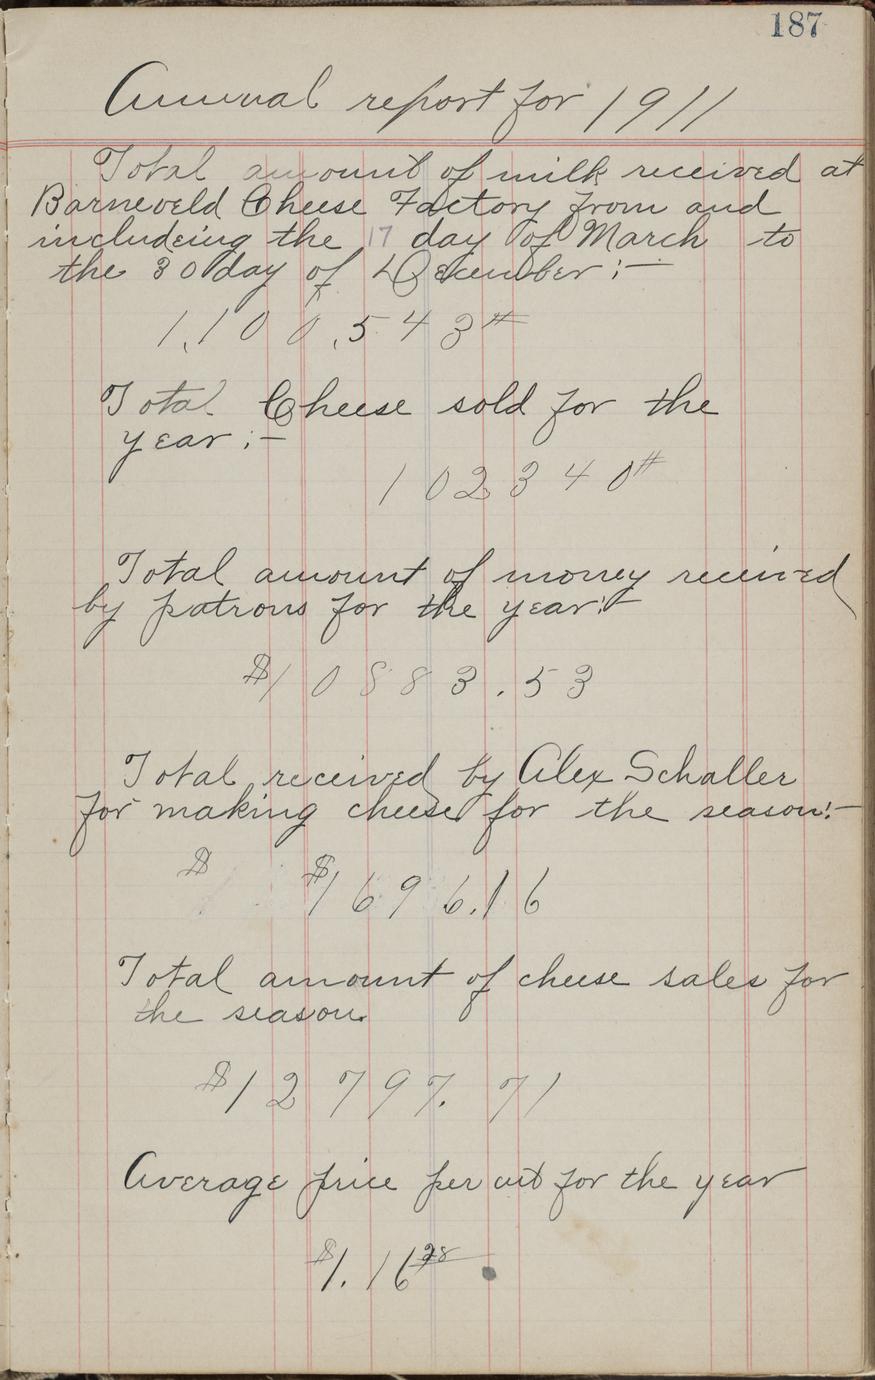 187
Annual report for 1911
Total amount of milk received at
Barneveld Cheese Factory from and
includeing the 17 day of March to
the 30 day of December :—
1,100,543#
Total Cheese sold for the
year :—
102340#
Total amount of money received
by patrons for the year:—
$10883.53
Total received by Alex Schaller
for making cheese for the season:—
$ $1696.16
Total amount of cheese sales for
the season.
$12797.71
Average price per cwt for the year
$1.16 28